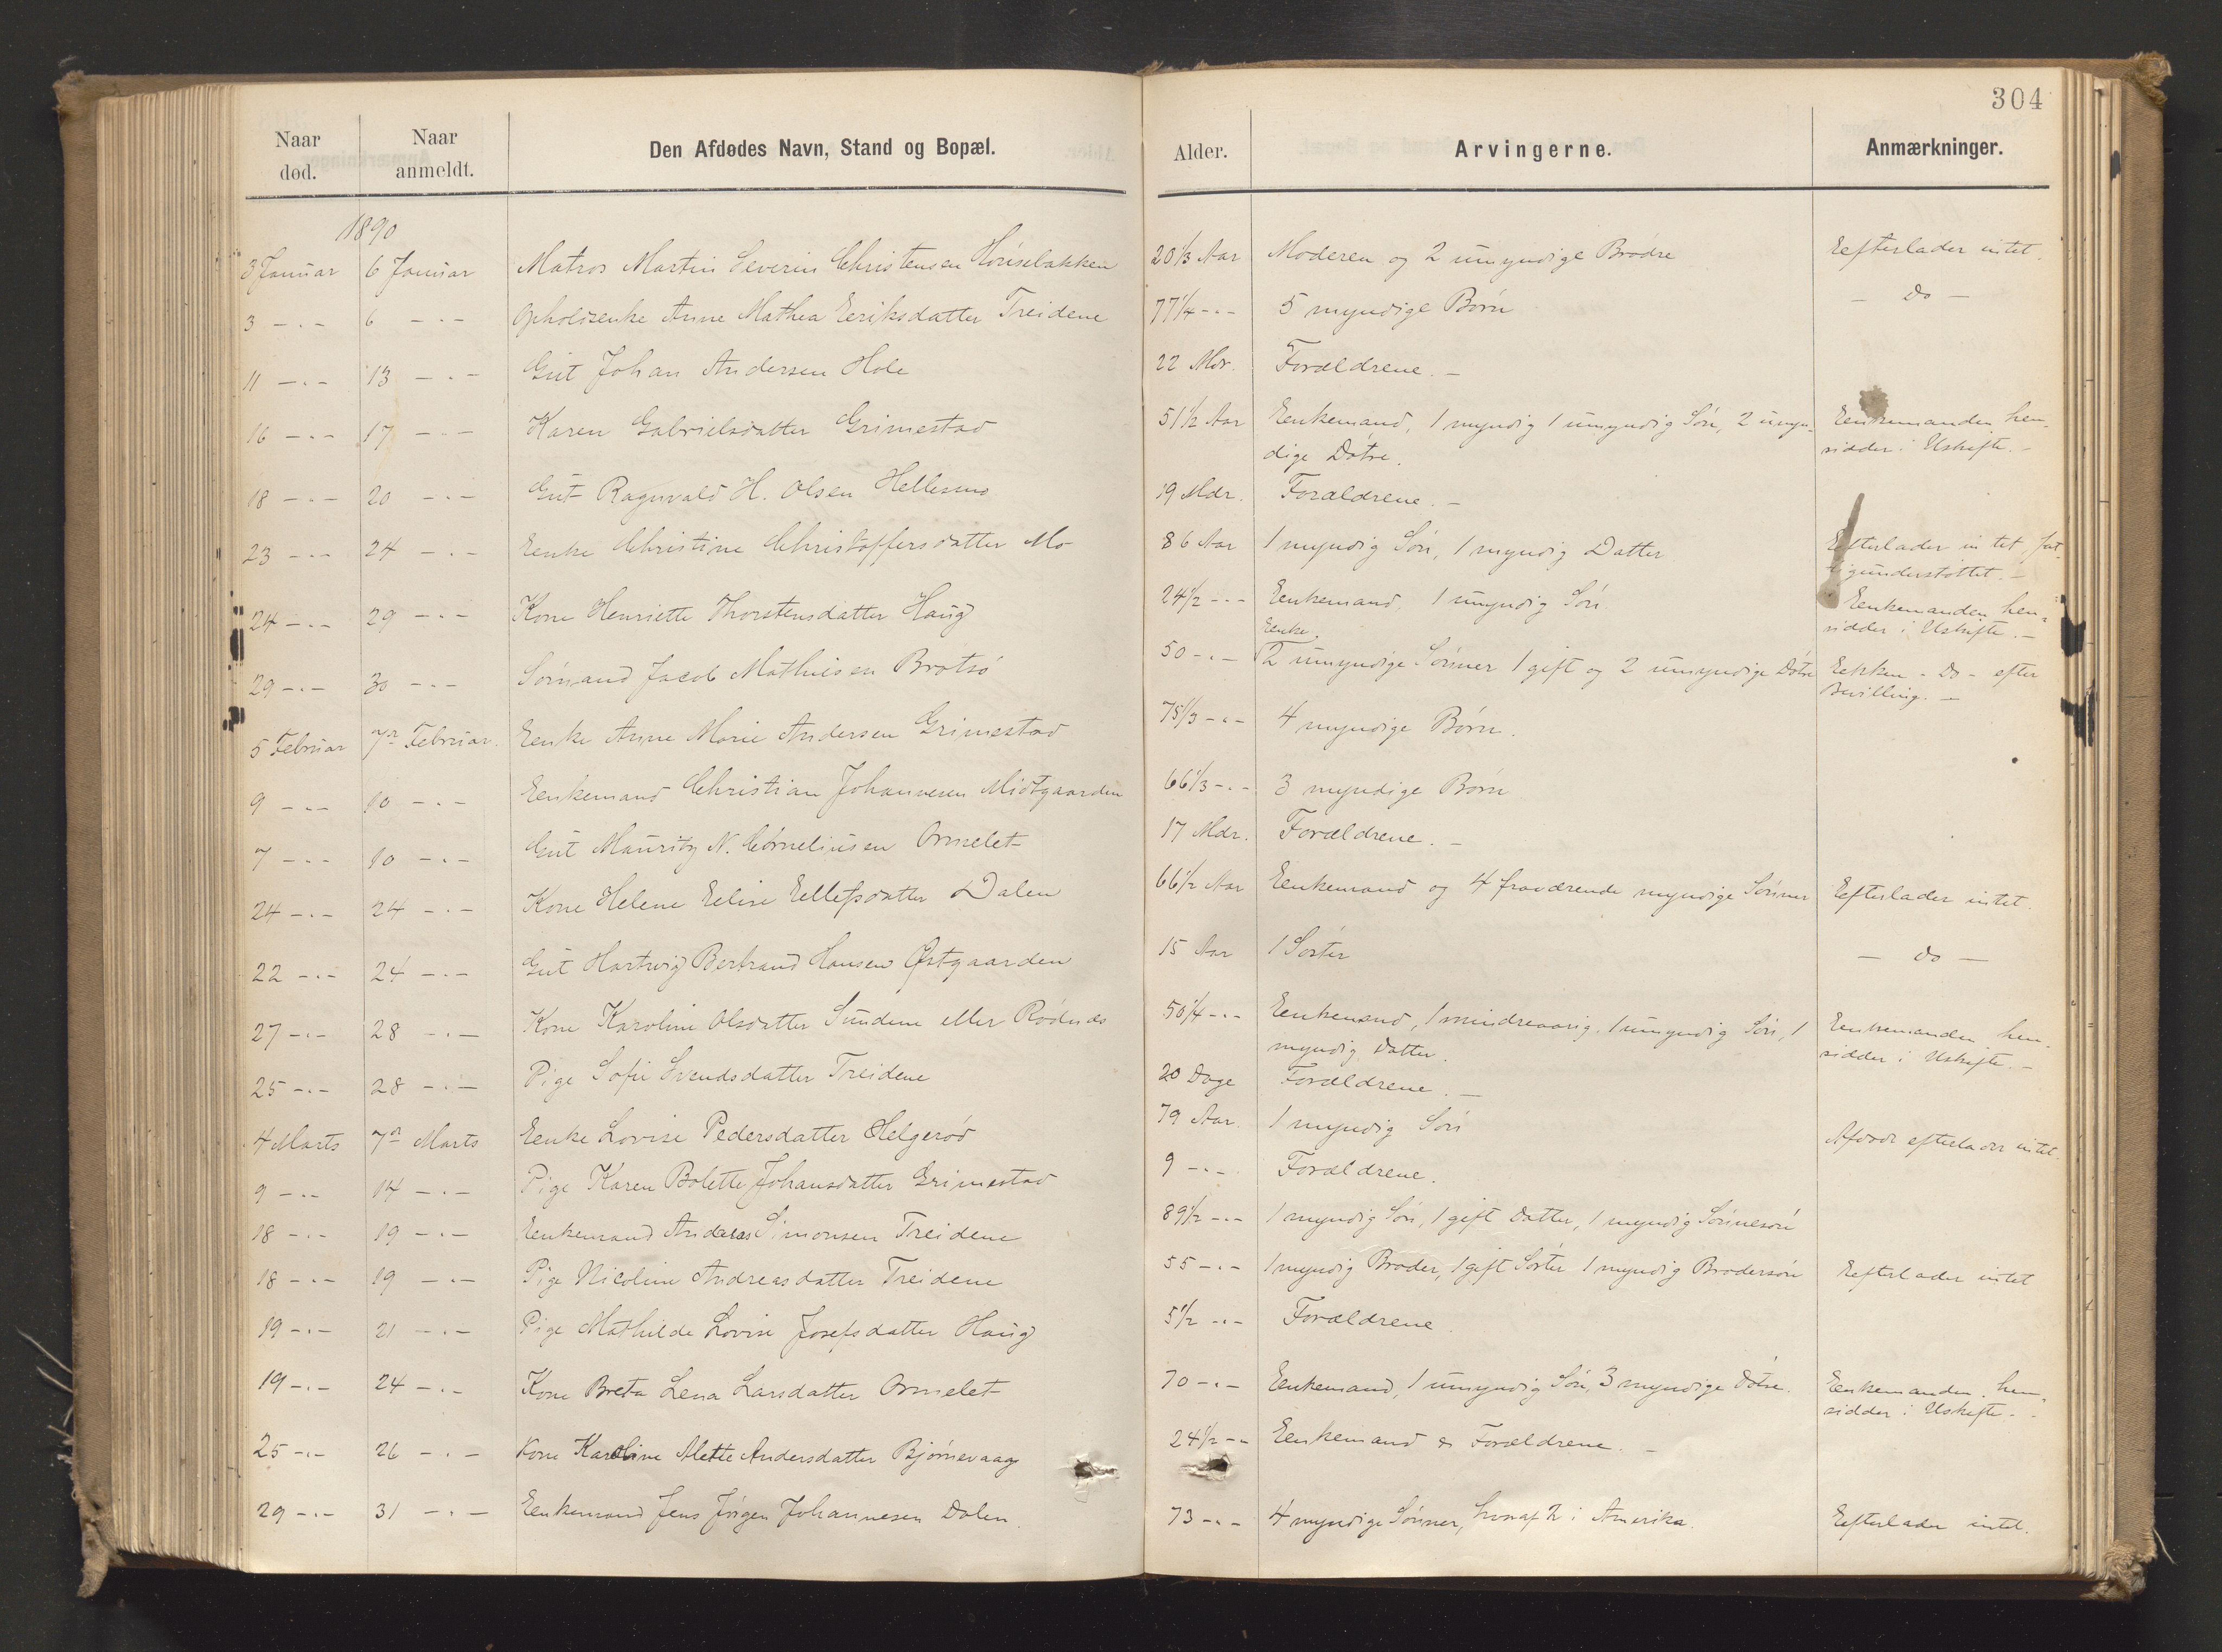 304
Naar død.
Naar anmeldt.
Den Afdødes Navn, Stand og Bopæl.
Alder.
Arvingerne.
Anmærkninger.
1890
3 Januar 6 Januar Matros Martin Severin Christensen 20 1/3 Aar Moderen og 2 umyndige Brødre Eefterlader intet.
3 -"- 6 -"- Opholdsenke Anne Mathea Eeriksdatter Treidene 77 1/4 -"- 5 myndige Børn - do -
11 -"- 13 -"- Gut Johan Andersen Hole 22 Mdr. Forældrene. -
16 -"- 17 -"- Karen Gabrielsdatter Grimestad 51 1/2 Aar Eenkemand, 1 myndig 1 umyndig Søn, 2 umyn- Eenkemanden hen-
dige Døtre. sidder i Uskifte. -
18 -"- 20 -"- Gut Ragnvald H. Olsen Hellesmo 19 Mdr. Forældrene. -
23 -"- 24 -"- Eenke Christine Christoffersdatter Mo 86 Aar 1 myndig Søn, 1 myndig Datter Eefterlader intet, fat-
tigunderstøttet. -
24 -"- 29 -"- Kone Henriette Thorstensdatter Haug 24 1/2 -"- Eenkemand, 1 umyndig Søn Eenkemanden hen-
sidder i Uskifte. -
Eenke,
29 -"- 30 -"- Sømand Jacob Mathisen Brotsø 50 -"- 2 umyndige Sønner 1 gift og 2 umyndige Døtre Eekken - do - efter
Bevilling. -
5 Februar 7de Februar. Eenke Anne Marie Andersen Grimestad 75 1/3 -"- 4 myndige Børn.
9 -"- 10 -"- Eenkemand Christian Johannesen Midtgaarden 66 1/3 -"- 3 myndige Børn
7 -"- 10 -"- Gut Mauritz N. Corneliusen Ormelet 17 Mdr. Forældrene. -
24 -"- 24 -"- Kone Helene Eelise Eellefsdatter Dalen 66 1/2 Aar Eenkemand og 4 fraværende myndige Sønner Eefterlader intet.
22 -"- 24 -"- Gut Hartvig Bertrand Hansen Østgaarden 15 Aar 1 Søster - do -
27 -"- 28 -"- Kone Karoline Olsdatter Sundene eller Rødnæs 50 1/4 -"- Eenkemand, 1 mindreaarig, 1 umyndig Søn, 1 Eenkemanden hen-
myndig Datter. sidder i Uskifte. -
25 -"- 28 -"- Pige Sofie Svendsdatter Treidene 20 Dage Forældrene. -
4 Marts 7de Marts Eenke Lovise Pedersdatter Helgerød 79 Aar. 1 myndig Søn Afdøde efterlader intet.
9 -"- 14 -"- Pige Karen Bolette Johansdatter Grimestad 9 -"- Forældrene.
18 -"- 19 -"- Eenkemand Anders Simonsen Treidene 89 1/2 -"- 1 myndig Søn, 1 gift Datter, 1 myndig Sønnesøn
18 -"- 19 -"- Pige Nicoline Andreasdatter Treidene 55 -"- 1 myndig Broder, 1 gift Søster 1 myndig Brodersøn Eefterlader intet
19 -"- 21 -"- Pige Mathilde Lovise Josefsdatter Haug 5 1/2 -"- Forældrene.
19 -"- 24 -"- Kone Breta Lena Larsdatter Ormelet 70 -"- Eenkemand, 1 umyndig Søn, 3 myndige Døtre. Eenkemanden hen-
sidder i Uskifte. -
25 -"- 26 -"- Kone Karoline Mette Andersdatter Bjørnevaag 24 1/2 -"- Eenkemand & Forældrene. -
29 -"- 31 -"- Eenkemand Jens Jørgen Johannesen Dalen 73 -"- 4 myndige Sønner, hvoraf 2 i Amerika. Eefterlader intet.